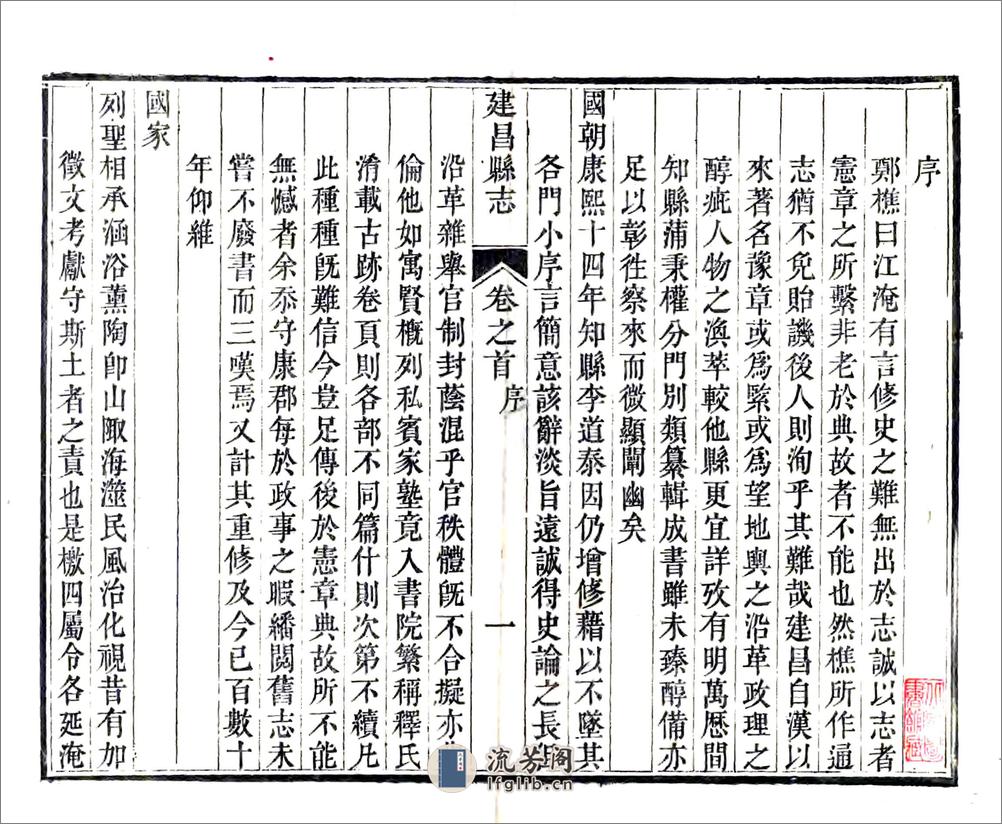 序
鄭樵曰江淹有言修史之難無出於志誠以志者
憲章之所繫非老於典故者不能也然樵所作通
志猶不免貽譏後人則洵乎其難哉建昌自漢以
來著名豫章或爲緊或爲望地輿之沿革政理之
醇疵人物之渙萃較他縣更宜詳攷有明萬厯間
知縣蒲秉權分門別類纂輯成書雖未臻醇備亦
足以彰徃察來而微顯闡幽矣
國朝康熙十四年知縣李道泰因仍增修藉以不墜其
各門小序言簡意該辭淡旨遠誠得史論之長
建昌縣志
卷之首
序
一
沿革雜舉官制封蔭混乎官秩體旣不合擬亦
倫他如寓賢概列私賓家塾竟入書院繁稱釋氏
淆載古跡卷頁則各部不同篇什則次第不續凢
此種種旣難信今豈足傳後於憲章典故所不能
無憾者余忝守康郡每於政事之暇繙閱舊志未
嘗不廢書而三嘆焉又計其重修及今已百數十
年仰維
國家
列聖相承涵浴薰陶卽山陬海澨民風治化視昔有加
徵文考獻守斯土者之責也是檄四屬令各延淹
流芳阁
lfglib.cn